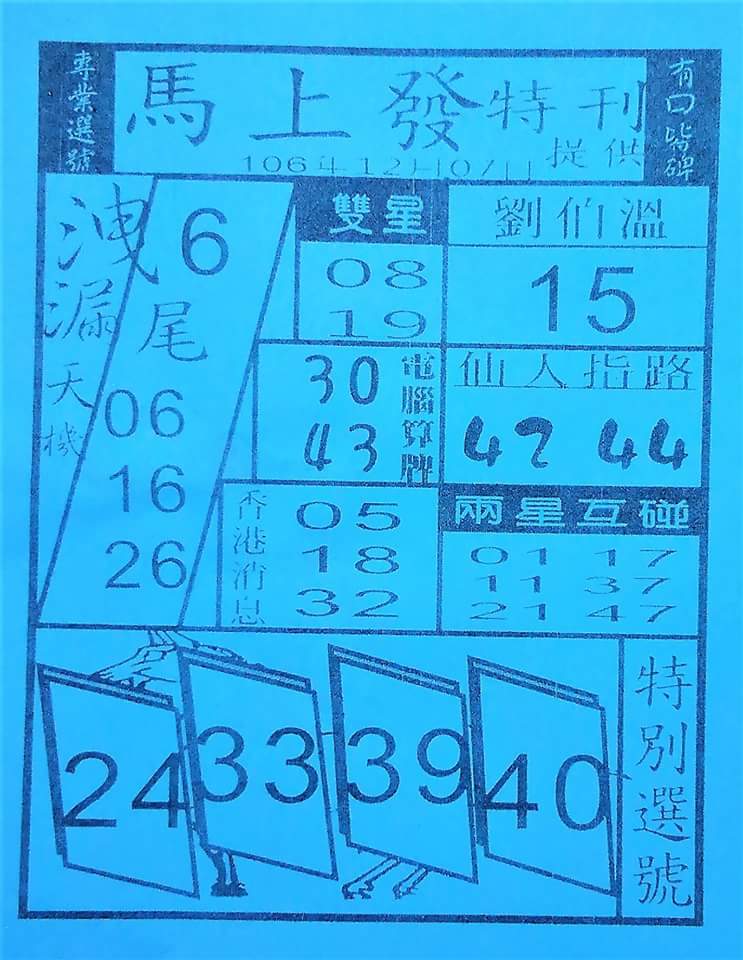 專業選號
馬上發特刊
提供
有口皆碑
106年12月07日
洩漏天機
6
尾
06
16
26
雙星
08
19
劉伯溫
15
30
43
電腦算牌
仙人指路
42 44
香港消息
05
18
32
兩星互碰
01 17
11 37
21 47
24 33 39 40
特別選號